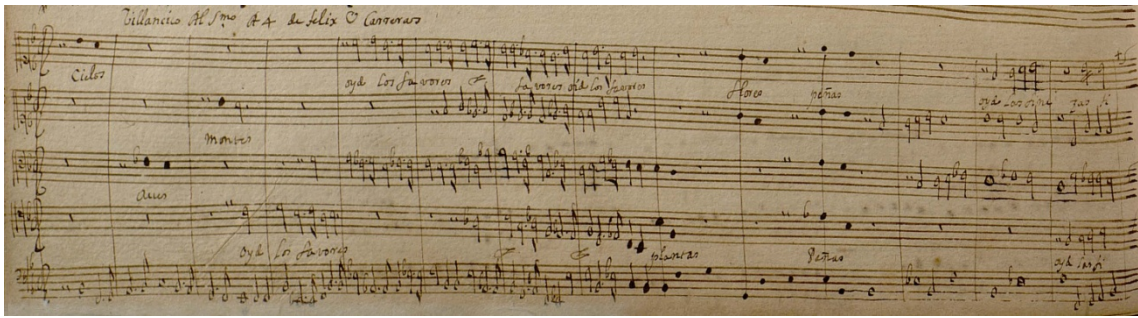 Villancico Al Smo A 4 de felix Carreras
Cielos oyd los favores favores oid los favores flores peñas oyd las
montes
Aues
oyd los favores plantas Peñas oyd las fi